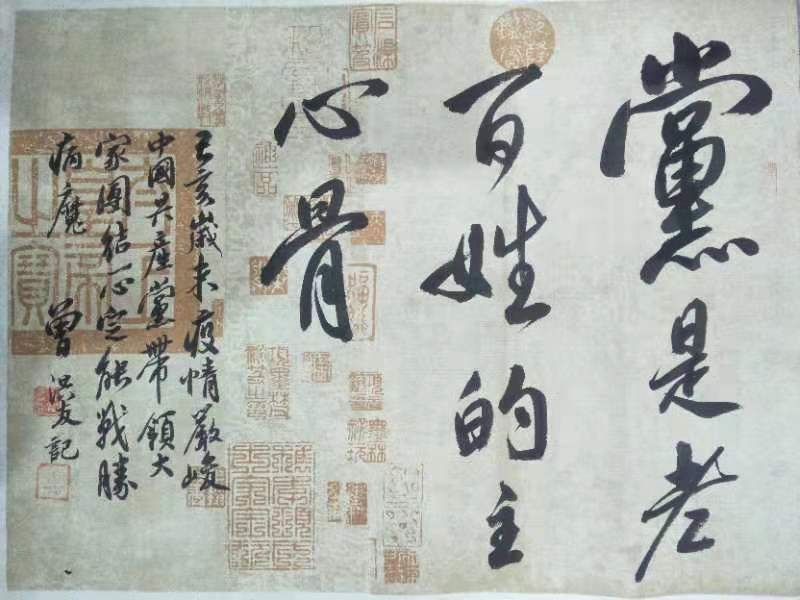 黨是老
百姓的主
心骨
己亥歲末疫情嚴峻
中國共產黨帶領大
家團结一心定能戰勝
病魔 曾洪友記